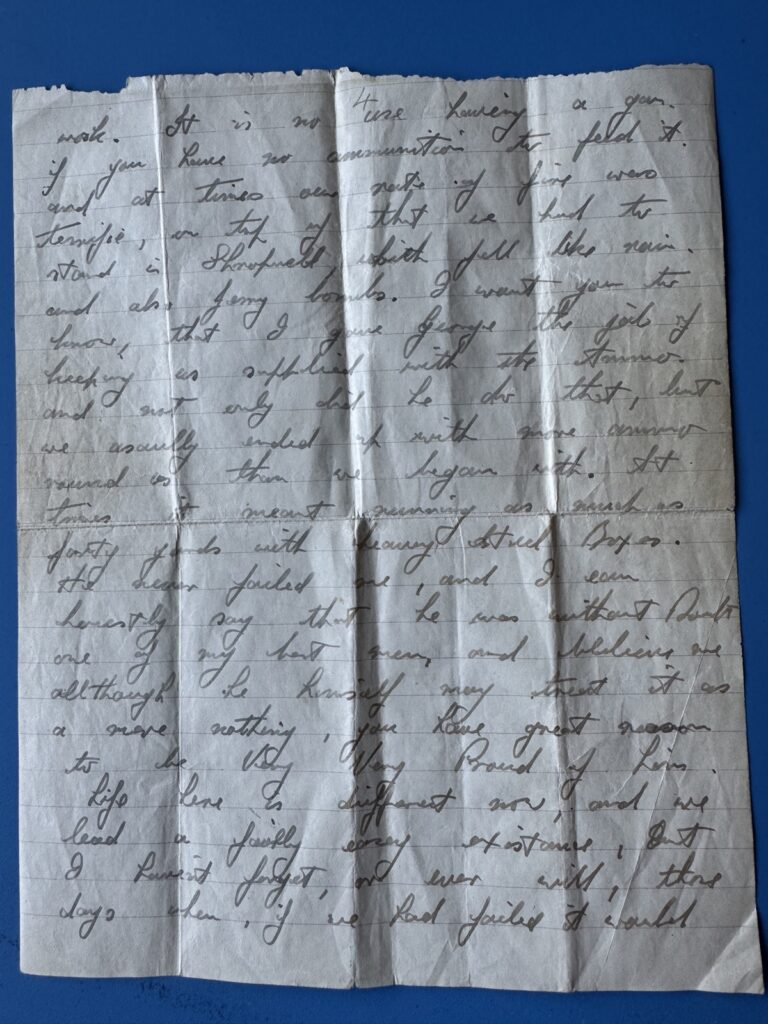 4
work. It is no use having a gun.
if you have no ammunition to feed it.
and at times our rate of fire was
terrific, on top of that we had to
stand in Shrapnell, which fell like rain.
and also Jerry bombs. I want you to
know, that I gave George the job of
keeping us supplied with the Ammo.
and not only did he do that, but
we usually ended up with more ammo
round us than we began with. At
times it meant running as much as
forty yards with heavy Steel Boxes.
He never failed me, and I can
honestly say that he was without Doubt
one of my best men, and believe me
allthough he himself may treat it as
a mere nothing, you have great reason
to be Very Very Proud of him.
Life here is different now, and we
lead a fairly easey existance, But
I haven't forget, or ever will, those
days when, if we had failed it would